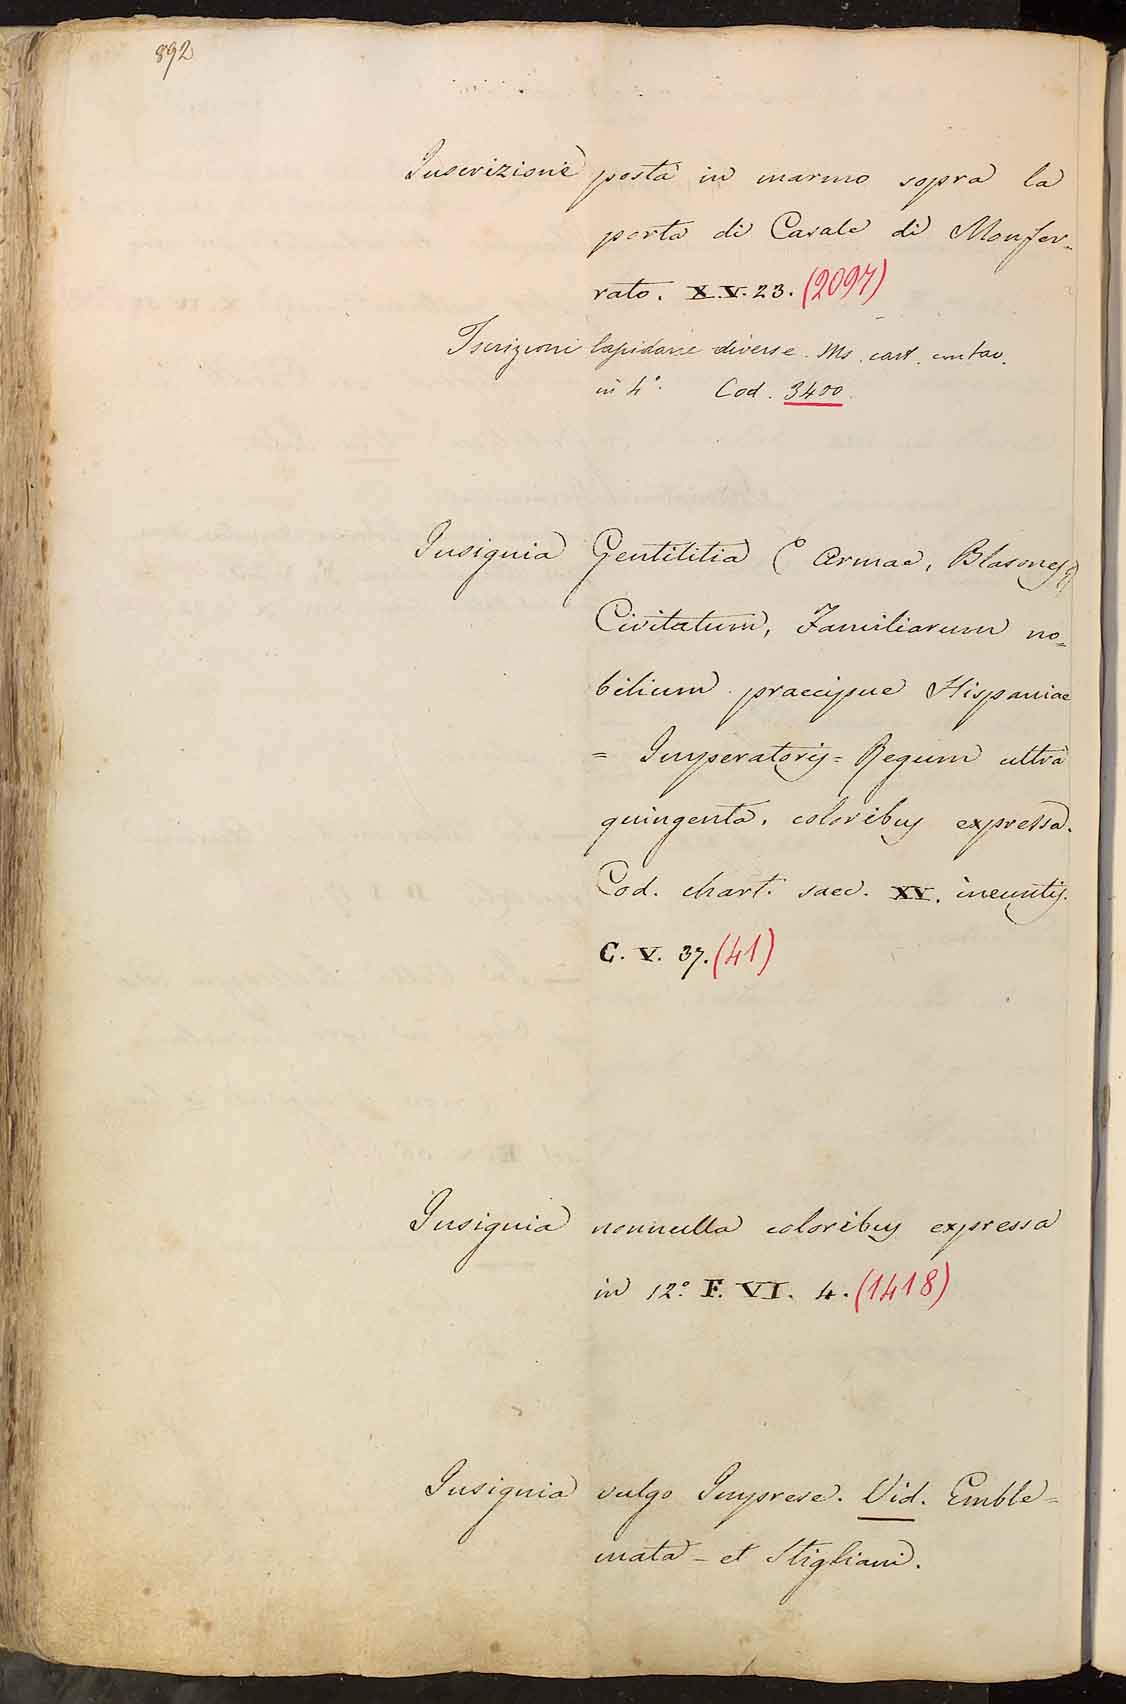 892
Inscrizione posta in marmo sopra la
porta di Casale di Monfer=
rato. X.V. 23. (2097)
Iscrizioni lapidarie diverse. Ms. cart. con tav.
in 4°. Cod. 3400.
Insignia Gentilitia (o Armae, Blasones)
Civitatum, Familiarum no=
bilium praecipue Hispaniae
= Imperatoris = Regum ultra
quingenta, coloribus expressa.
Cod. chart. saec. XV. ineuntis.
C. V. 37. (41)
Insignia nonnulla coloribus expressa
in 12° F. VI. 4. (1418)
Insignia vulgo Imprese. Vid. Emble=
mata - et Stigliani.